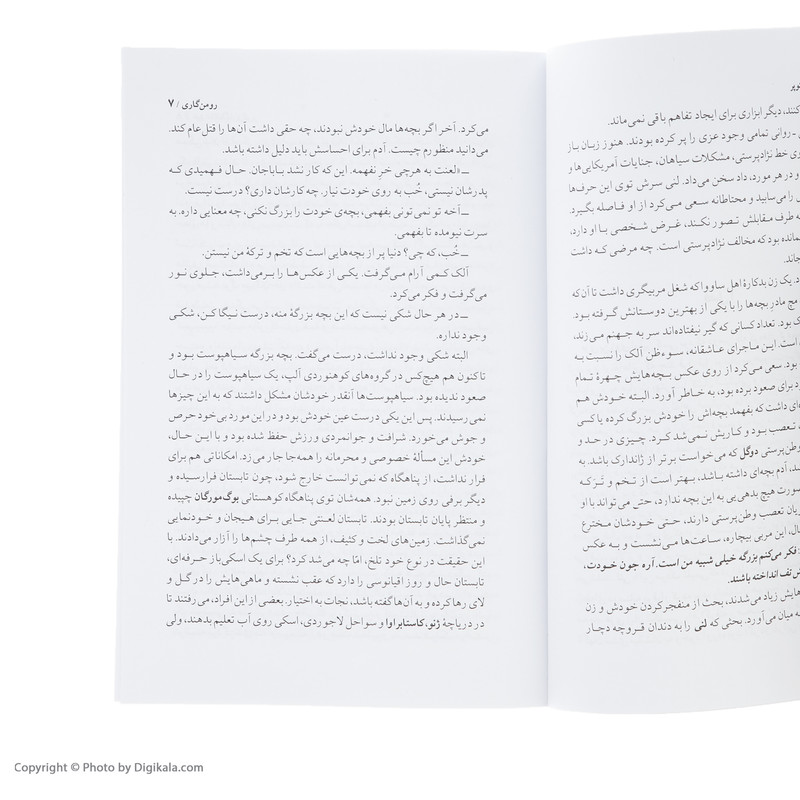 کوپر
کنند، دیگر ابزاری برای ایجاد تفاهم باقی نمی‌ماند.
ـ روانی تمامی وجود عزی را پر کرده بودند. هنوز زبان باز
وی خط نژادپرستی، مشکلات سیاهان، جنایات آمریکایی‌ها و
و در هر مورد، داد سخن می‌داد. لنی سرش توی این حرف‌ها
را می‌سایید و محتاطانه سعی می‌کرد از او فاصله بگیرد.
ه طرف مقابلش تصور نکند، غرض شخصی با او دارد،
مانده بود که مخالف نژادپرستی است. چه مرضی که داشت
جاند.
د. یک زن بدکارهٔ اهل ساووا که شغل مربیگری داشت تا آن‌که
مچ مادرِ بچه‌ها را با یکی از بهترین دوستانش گرفته بود.
ک بود. تعداد کسانی که گیر نیفتاده‌اند سر به جهنم می‌زند،
است. این ماجرای عاشقانه، سوءظن آلک را نسبت به
بود. سعی می‌کرد از روی عکس بچه‌هایش چهرهٔ تمام
برای صعود برده بود، به خاطر آورد. البته خودش هم
ای داشت که بفهمد بچه‌اش را خودش بزرگ کرده یا کس
تعصب بود و کاریش نمی‌شد کرد. چیزی در حد و
وطن‌پرستی دوگل که می‌خواست برتر از ژاندارک باشد. به
ـد، آدم بچه‌ای داشته باشد، بهتر است از تخم و تَرَکه
صورت هیچ بدهی‌یی به این بچه ندارد، حتی می‌تواند با او
ریان تعصب وطن‌پرستی دارند، حتـی خودشان مخترع
ال، این مربی بیچاره، ساعت‌ها می‌نشست و به عکس
: فکر می‌کنم بزرگه خیلی شبیه من است. آره جون خودت،
ش تف انداخته باشند.
هایش زیاد می‌شدند، بحث از منفجرکردن خودش و زن
ه میان می‌آورد. بحثی که لنی را به دندان قروچه دچار
رومن‌گاری / ۷
می‌کرد. آخر اگر بچه‌ها مال خودش نبودند، چه حقی داشت آن‌ها را قتل‌عام کند.
می‌دانید منظورم چیست. آدم برای احساسش باید دلیل داشته باشد.
ــ «لعنت به هرچی خرِ نفهمه. این که کار نشد باباجان. حال فهمیدی که
پدرشان نیستی، خُب به روی خودت نیار. چه کارشان داری؟ درست نیست.
ــ آخه تو نمی‌تونی بفهمی، بچه‌ی خودت را بزرگ نکنی، چه معنایی داره. به
سرت نیومده تا بفهمی.
ــ خُب، که چی؟ دنیا پر از بچه‌هایی است که تخم و ترکهٔ من نیستن.
آلک کمی آرام می‌گرفت. یکی از عکس‌ها را برمی‌داشت، جلوی نور
می‌گرفت و فکر می‌کرد.
ــ در هر حال شکی نیست که این بچه بزرگهٔ منه، درست نیگا کن، شکی
وجود نداره.
البته شکی وجود نداشت، درست می‌گفت. بچه بزرگه سیاهپوست بود و
تاکنون هم هیچ‌کس در گروه‌های کوهنوردی آلپ، یک سیاهپوست را در حال
صعود ندیده بود. سیاهپوست‌ها آنقدر خودشان مشکل داشتند که به این چیزها
نمی‌رسیدند. پس این یکی درست عین خودش بود و در این مورد بی‌خود حرص
و جوش می‌خورد. شرافت و جوانمردی ورزش حفظ شده بود و با این حال،
خودش این مسألهٔ خصوصی و محرمانه را همه‌جا جار می‌زد. امکاناتی هم برای
فرار نداشت، از پناهگاه که نمی‌توانست خارج شود، چون تابستان فرارسیده و
دیگر برفی روی زمین نبود. همه‌شان توی پناهگاه کوهستانی بوگ‌مورگان چپیده
و منتظر پایان تابستان بودند. تابستان لعنتی جایی برای هیجان و خودنمایی
نمی‌گذاشت. زمین‌های لخت و کثیف، از همه طرف چشم‌ها را آزار می‌دادند. با
این حقیقت در نوع خود تلخ، امّا چه می‌شد کرد؟ برای یک اسکی‌باز حرفه‌ای،
تابستان حال و روز اقیانوسی را دارد که عقب نشسته و ماهی‌هایش را در گل و
لای رها کرده و به آن‌ها گفته باشد، نجات به اختیار. بعضی از این افراد، می‌رفتند تا
در دریاچهٔ ژنو، کاستابراوا و سواحل لاجوردی، اسکی روی آب تعلیم بدهند، ولی
Copyright © Photo by Digikala.com